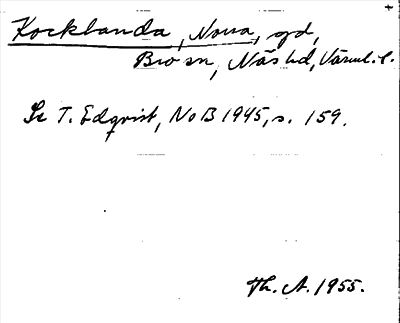 Kockbanda, Norra, gd,
Bro sn, Näs hd, Värml. l.
Se T. Edqvist, NoB 1945, s. 159.
Th. A. 1955.